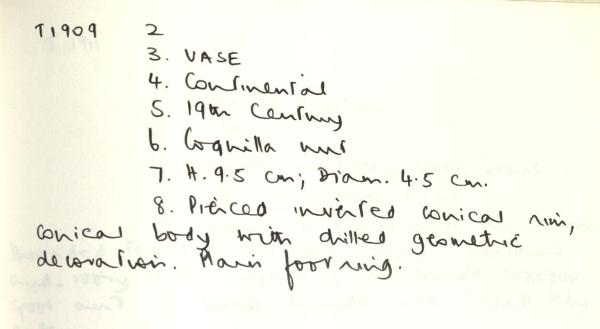 T1909 2
3. VASE
4. Continental
5. 19th Century
6. Coquilla nut
7. H. 9.5 cm; Diam. 4.5 cm.
8. Pierced inverted conical rim,
conical body with drilled geometric
decoration. Plain foot ring.